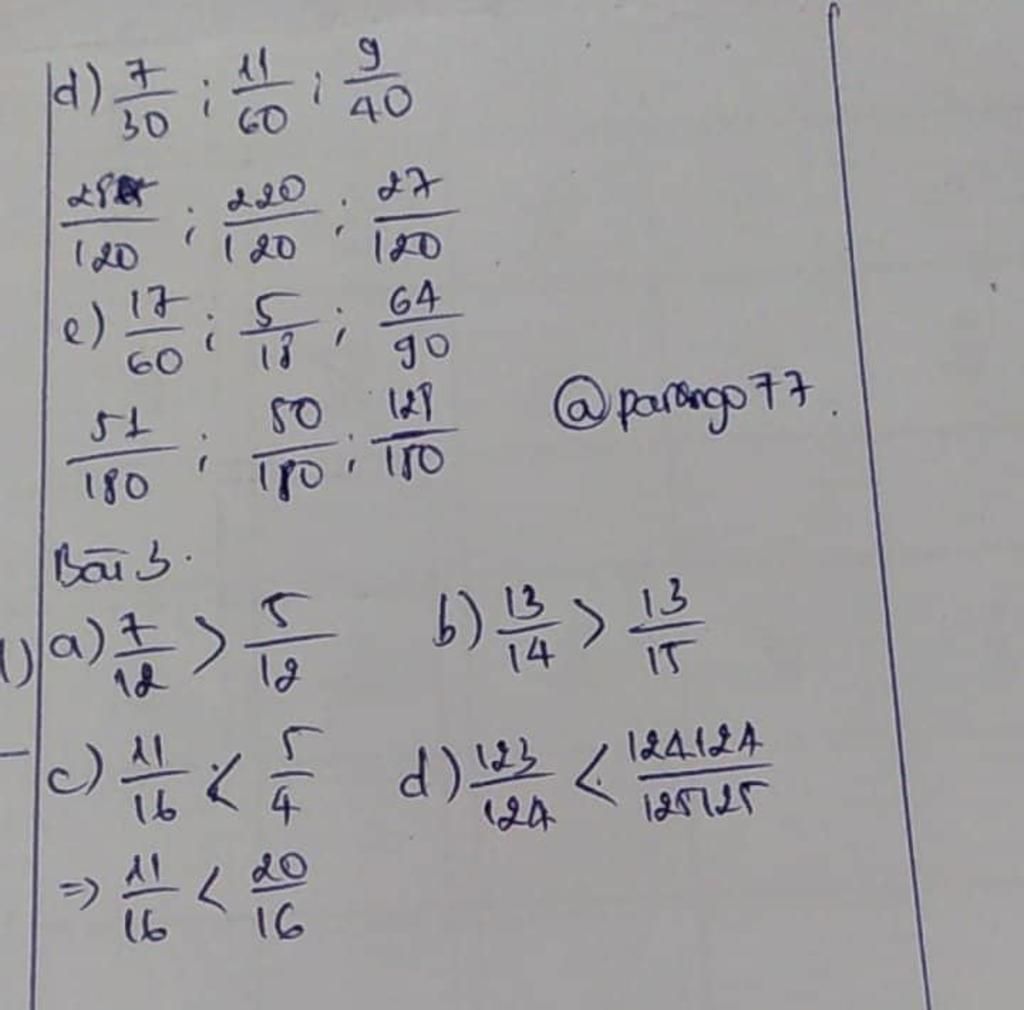 d) 7/30 ; 11/60 ; 9/40
28/120 ; 220/120 ; 27/120
e) 17/60 ; 5/18 ; 64/90
51/180 ; 50/180 ; 128/180
@parongo77.
Bài 3.
1) a) 7/12 > 5/12 b) 13/14 > 13/15
c) 11/16 < 5/4 d) 123/124 < 124124/125125
=> 11/16 < 20/16